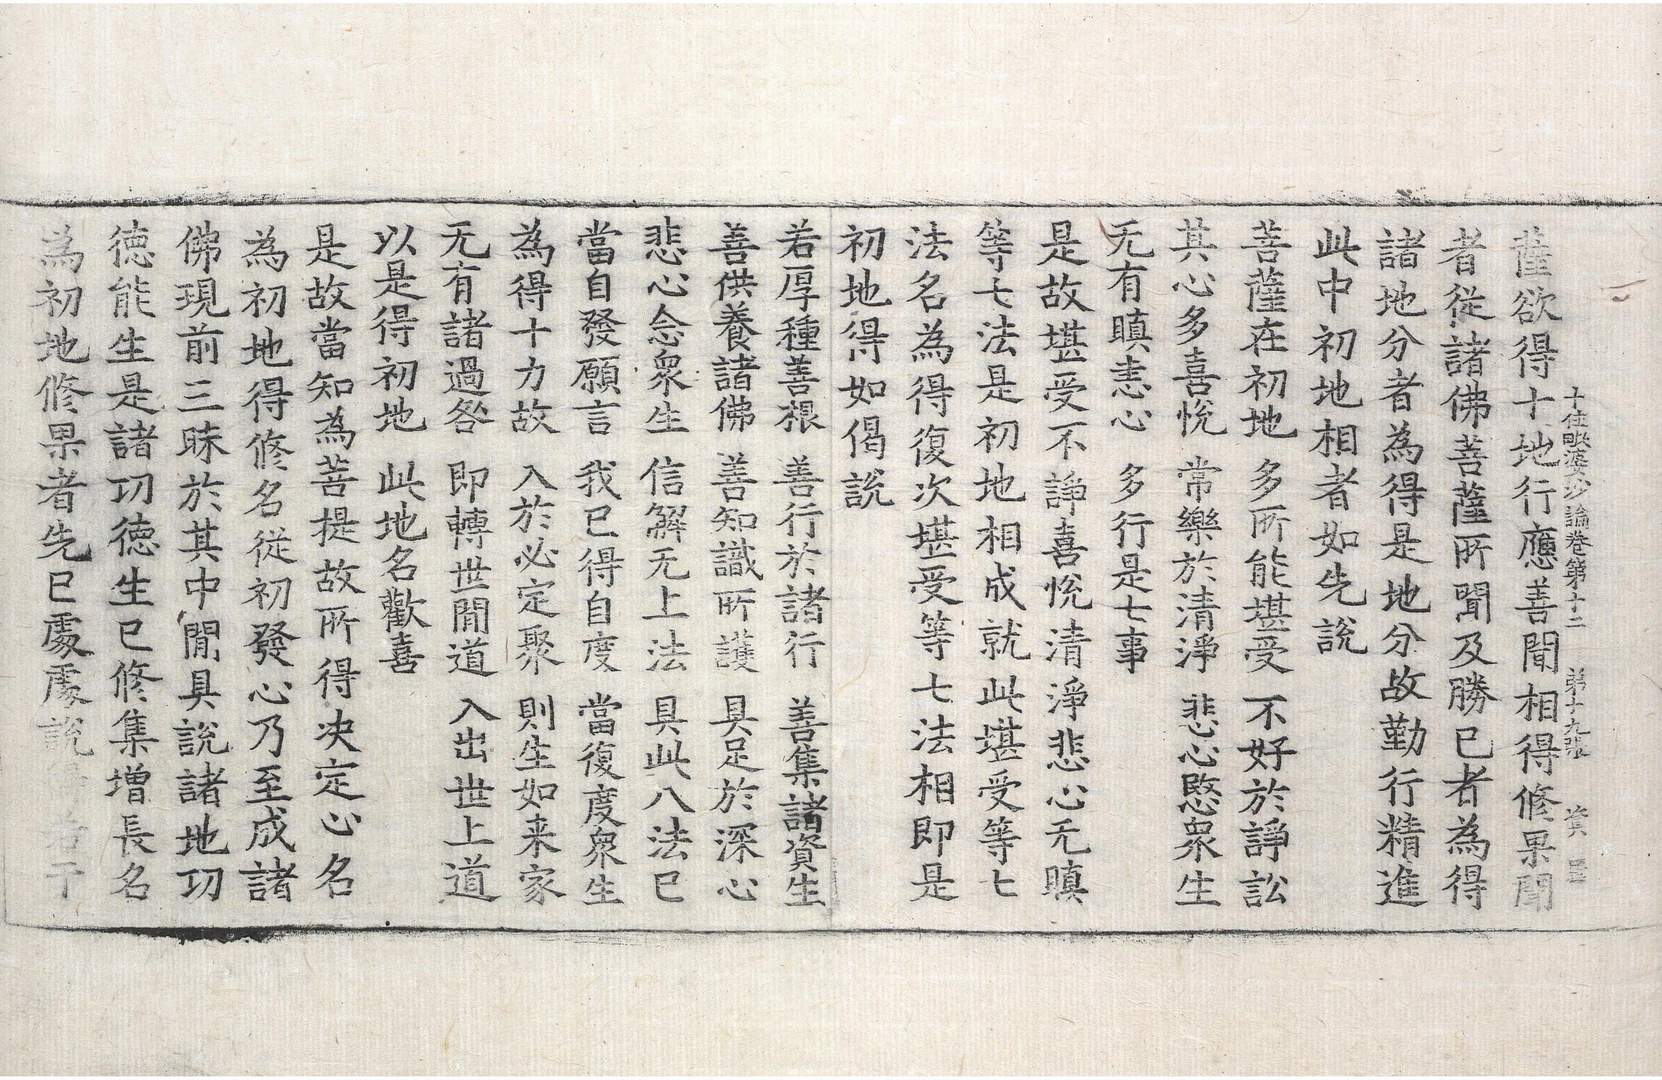 十住毗婆沙論卷第十二 第十九張 資
薩欲得十地行應善聞相得修果聞
者從諸佛菩薩所聞及勝已者為得
諸地分者為得是地分故勤行精進
此中初地相者如先說
菩薩在初地 多所能堪受 不好於諍訟
其心多喜悅 常樂於清淨 悲心愍衆生
无有瞋恚心 多行是七事
是故堪受不諍喜悅清淨悲心无瞋
等七法是初地相成就此堪受等七
法名為得復次堪受等七法相即是
初地得如偈說
若厚種善根 善行於諸行 善集諸資生
善供養諸佛 善知識所護 具足於深心
悲心念衆生 信解无上法 具此八法已
當自發願言 我已得自度 當復度衆生
為得十力故 入於必定聚 則生如来家
无有諸過咎 即轉世間道 入出世上道
以是得初地 此地名歡喜
是故當知為菩提故所得决定心名
為初地得修名從初發心乃至成諸
佛現前三昧於其中間具說諸地功
德能生是諸功德生已修集增長名
為初地修果者先已處處說得若干